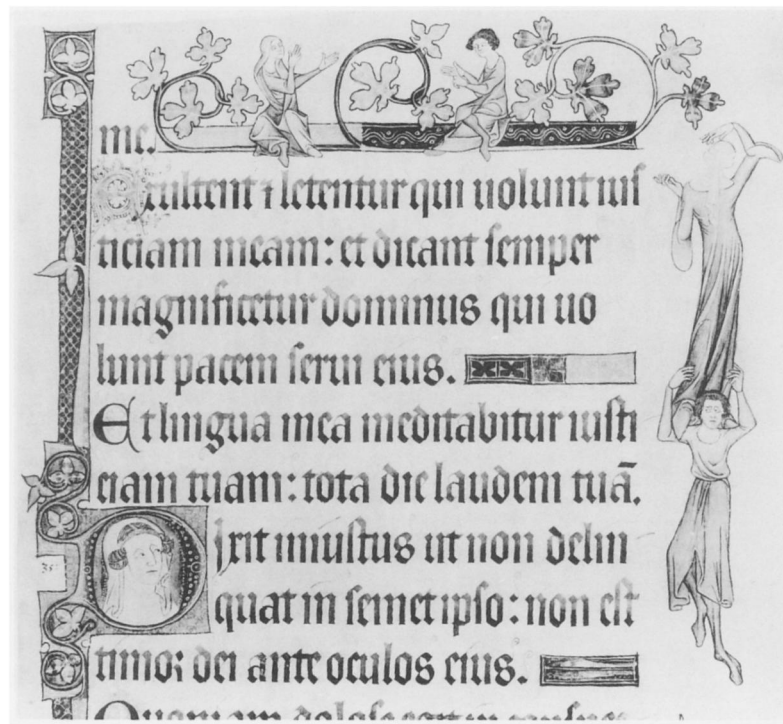 me.
Exultent ⁊ letentur qui uolunt ius
ticiam meam: et dicant semper
magnificetur dominus qui uo
lunt pacem serui eius.
Et lingua mea meditabitur iusti
ciam tuam: tota die laudem tuā.
Dixit iniustus ut non delin
quat in semet ipso: non est
timor dei ante oculos eius.
Quoniam dolose egit in